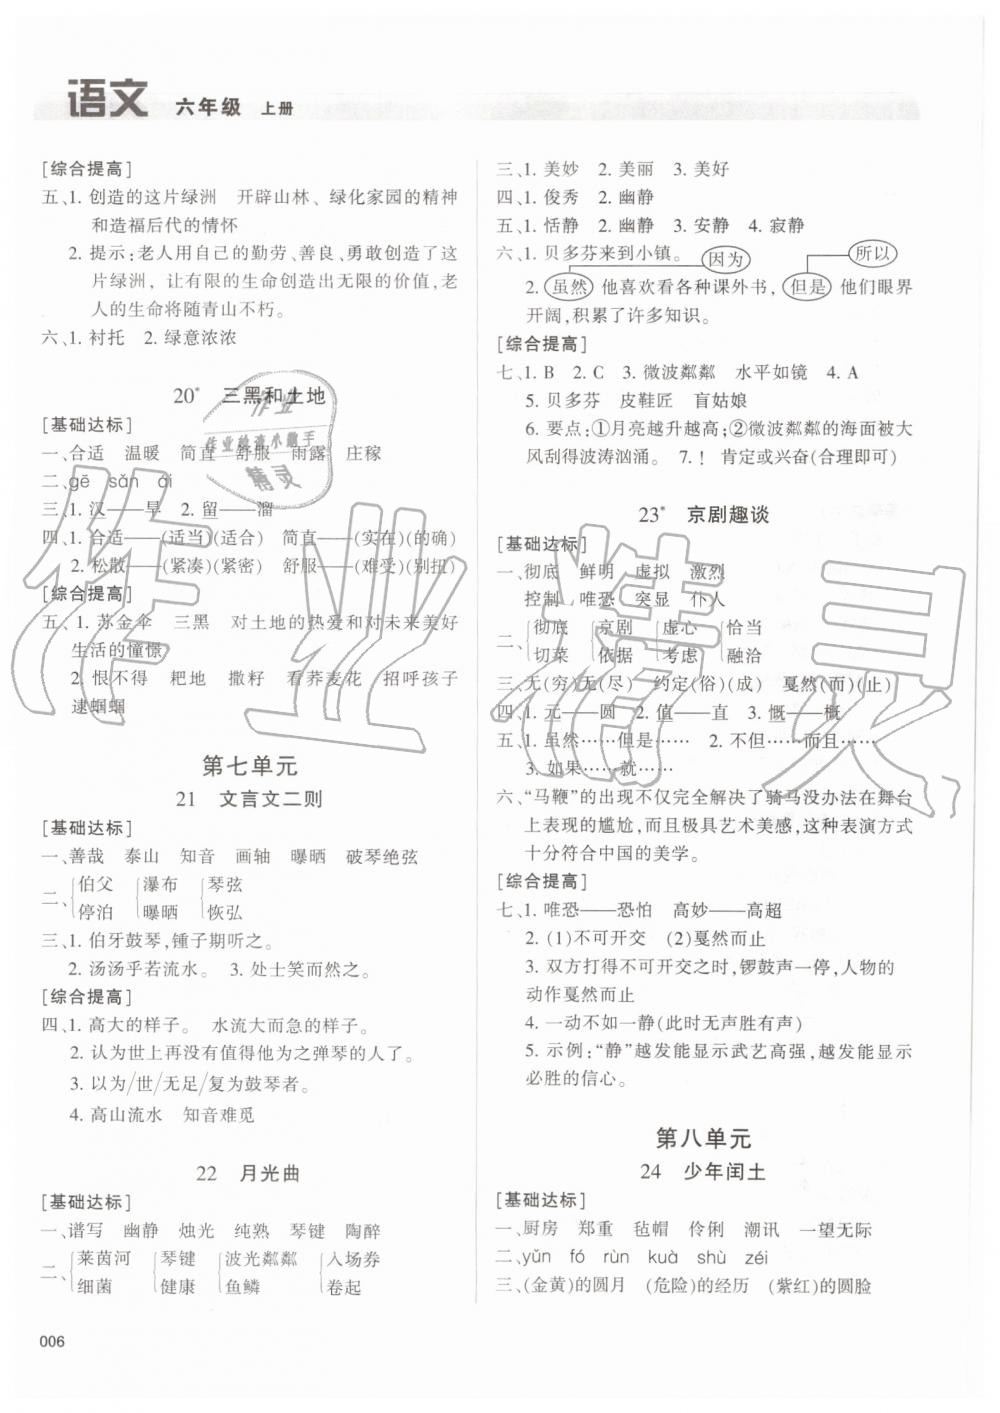 语文 六年级 上册
[综合提高]
五、1. 创造的这片绿洲 开辟山林、绿化家园的精神
和造福后代的情怀
2. 提示:老人用自己的勤劳、善良、勇敢创造了这
片绿洲，让有限的生命创造出无限的价值,老
人的生命将随青山不朽。
六、1. 衬托 2. 绿意浓浓
20* 三黑和土地
[基础达标]
一、合适 温暖 简直 舒服 雨露 庄稼
二、gē sǎn ái
三、1. 汉——旱 2. 留——溜
四、1. 合适——(适当)(适合) 简直——(实在)(的确)
2. 松散——(紧凑)(紧密) 舒服——(难受)(别扭)
[综合提高]
五、1. 苏金伞 三黑 对土地的热爱和对未来美好
生活的憧憬
2. 恨不得 耙地 撒籽 看荞麦花 招呼孩子
逮蝈蝈
第七单元
21 文言文二则
[基础达标]
一、善哉 泰山 知音 画轴 曝晒 破琴绝弦
二、伯父 瀑布 琴弦
停泊 曝晒 恢弘
三、1. 伯牙鼓琴,锺子期听之。
2. 汤汤乎若流水。 3. 处士笑而然之。
[综合提高]
四、1. 高大的样子。 水流大而急的样子。
2. 认为世上再没有值得他为之弹琴的人了。
3. 以为/世/无足/复为鼓琴者。
4. 高山流水 知音难觅
22 月光曲
[基础达标]
一、谱写 幽静 烛光 纯熟 琴键 陶醉
二、莱茵河 琴键 波光粼粼 入场券
细菌 健康 鱼鳞 卷起
006
三、1. 美妙 2. 美丽 3. 美好
四、1. 俊秀 2. 幽静
五、1. 恬静 2. 幽静 3. 安静 4. 寂静
六、1. 贝多芬来到小镇。 因为 所以
2. 虽然 他喜欢看各种课外书， 但是 他们眼界
开阔,积累了许多知识。
[综合提高]
七、1. B 2. C 3. 微波粼粼 水平如镜 4. A
5. 贝多芬 皮鞋匠 盲姑娘
6. 要点:①月亮越升越高;②微波粼粼的海面被大
风刮得波涛汹涌。 7. ！ 肯定或兴奋(合理即可)
23* 京剧趣谈
[基础达标]
一、彻底 鲜明 虚拟 激烈
控制 唯恐 突显 仆人
二、彻底 京剧 虚心 恰当
切菜 依据 考虑 融洽
三、无(穷)无(尽) 约定(俗)(成) 戛然(而)(止)
四、1. 元——圆 2. 值——直 3. 慨——概
五、1. 虽然……但是…… 2. 不但……而且……
3. 如果……就……
六、“马鞭”的出现不仅完全解决了骑马没办法在舞台
上表现的尴尬,而且极具艺术美感,这种表演方式
十分符合中国的美学。
[综合提高]
七、1. 唯恐——恐怕 高妙——高超
2. (1)不可开交 (2)戛然而止
3. 双方打得不可开交之时,锣鼓声一停,人物的
动作戛然而止
4. 一动不如一静(此时无声胜有声)
5. 示例:“静”越发能显示武艺高强,越发能显示
必胜的信心。
第八单元
24 少年闰土
[基础达标]
一、厨房 郑重 毡帽 伶俐 潮讯 一望无际
二、yǔn fó rùn kuà shù zéi
三、(金黄)的圆月 (危险)的经历 (紫红)的圆脸
作业精灵
作业检查小助手
作业
精灵